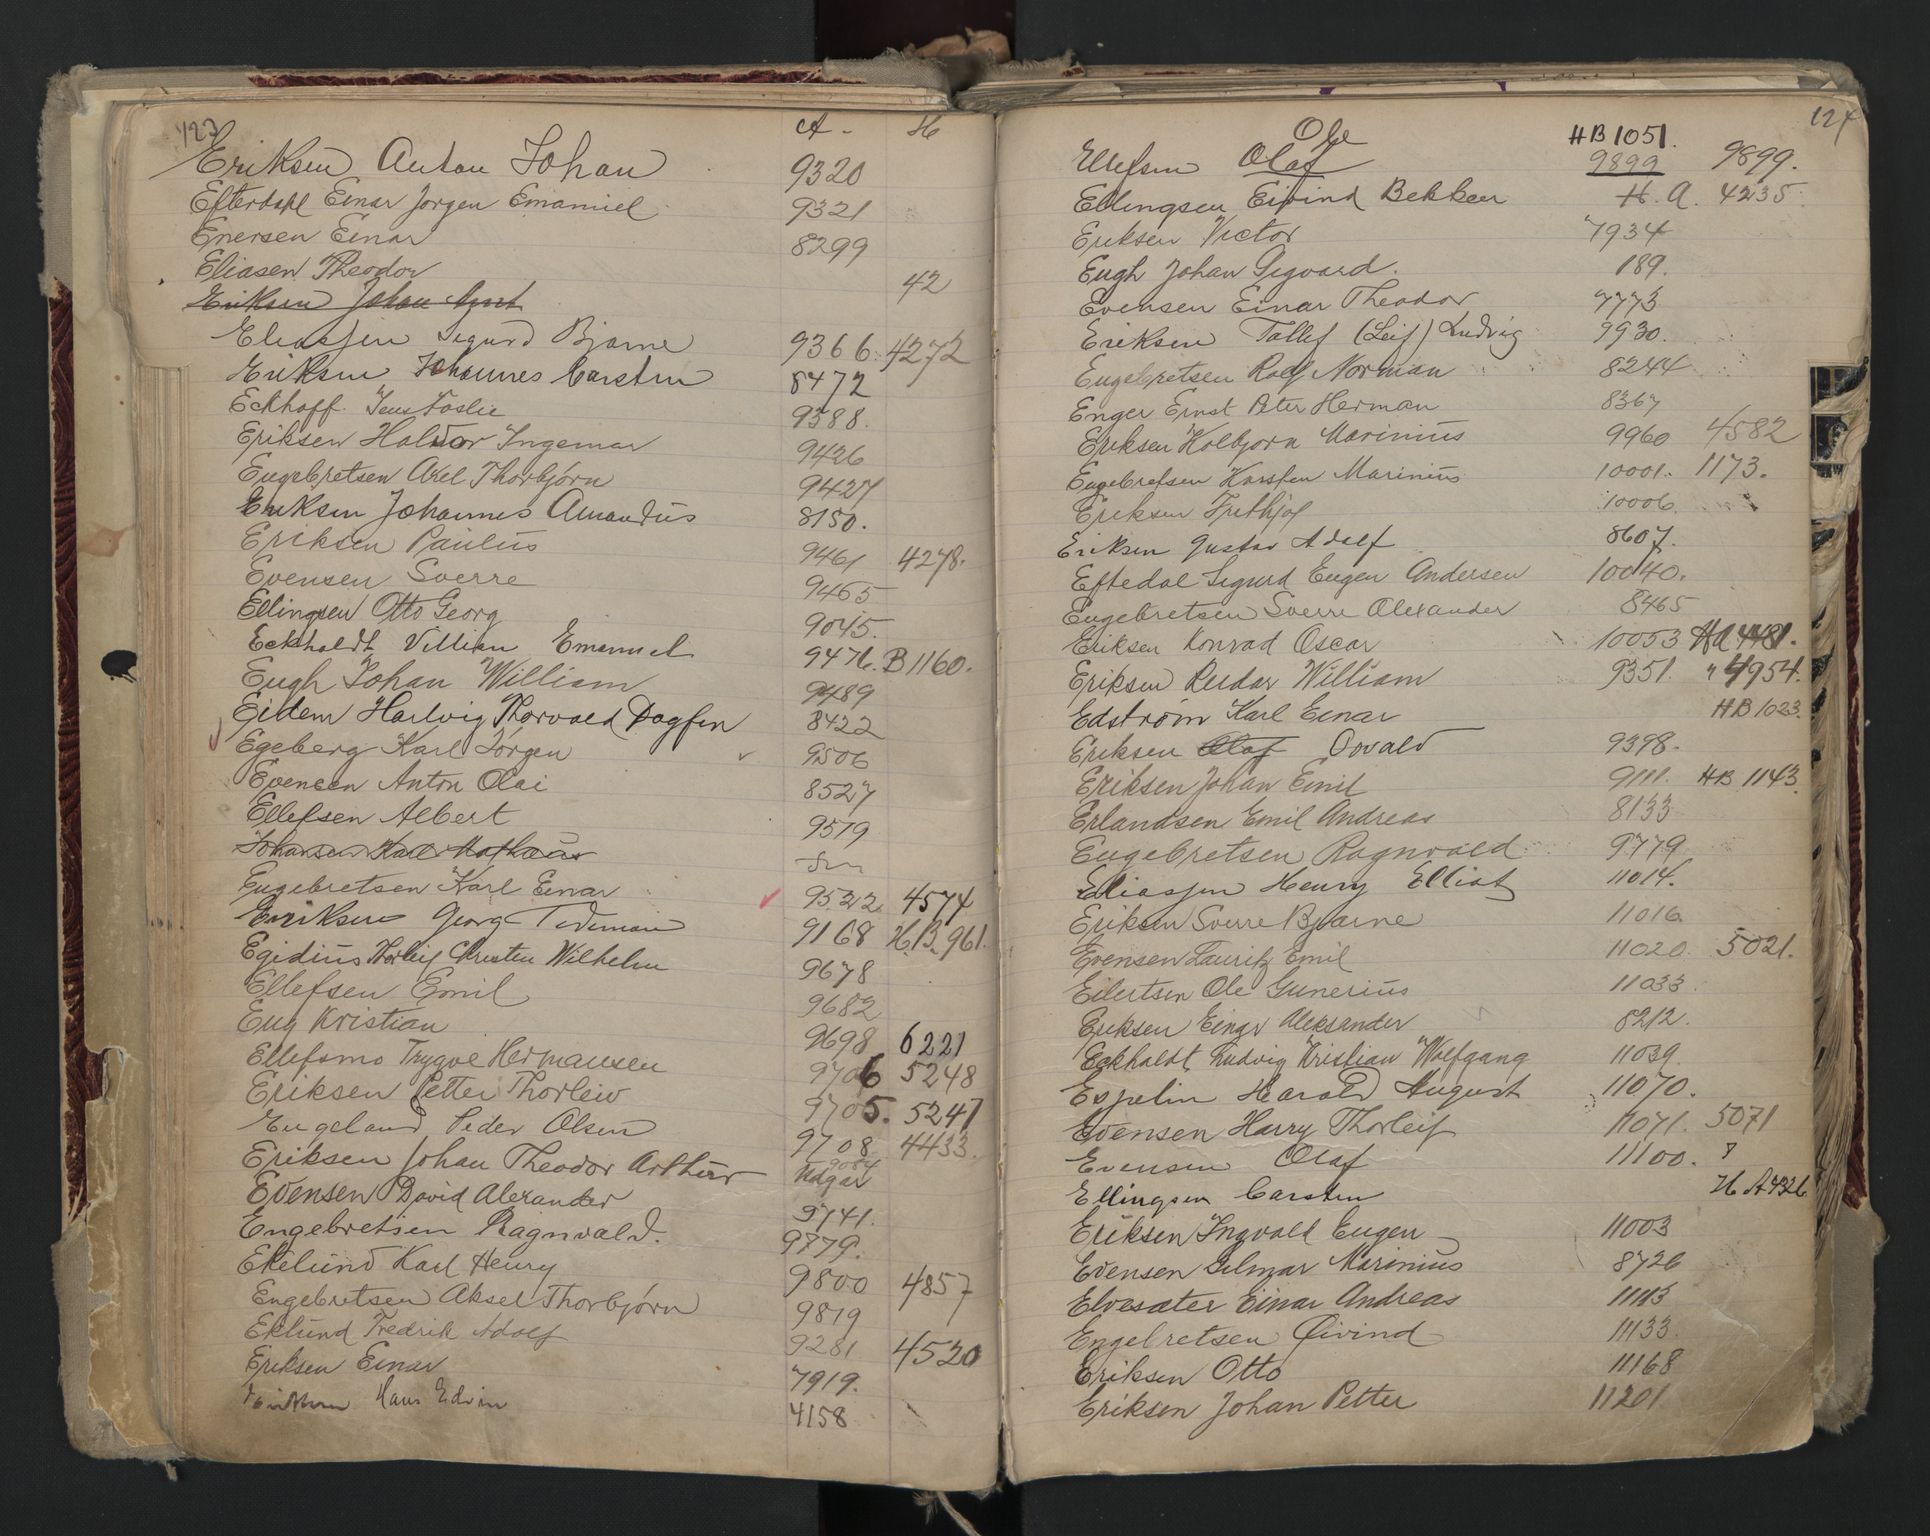 123
A - H
Eriksen Anton Johan 9320
Efterdahl Einar Jørgen Emanuel 9321
Enersen Einar 8299
Eliasen Theodor 42
Eriksen Johan
Eliassen Sigurd Bjarne 9366 4272
Eriksen Johannes Carsten 8472
Eckhoff Jens Foslie 9388.
Eriksen Haldor Ingemar 9426
Engebretsen Axel Thorbjørn 9427
Eriksen Johannes Amandus 8150.
Eriksen Paulus 9461 4278.
Evensen Sverre 9465
Ellingsen Otto Georg 9045.
Eckholdt Villiam Emanuel 9476. B 1160.
Engh Johan William 9489
Eidem Hartvig Thorvald Dagfin 8422
Egeberg Karl Jørgen 9506
Evensen Anton Olai 8527
Ellefsen Albert 9579
Johansen Karl Mathæus
Engebretsen Karl Einar 9522 4574
Eriksen Georg Tideman 9168 H.B. 961.
Egidius Thorleif Christen Wilhelm 9678
Ellefsen Emil 9682
Eug Kristian 9698 6221
Ellefsmo Trygve Hermansen 9706 5248
Eriksen Petter Thorleiv 9705. 5247
Engeland Peder Olsen 9708 4433.
Eriksen Johan Theodor Arthur 9084 Udgår
Evensen David Alexander 9741.
Engebretsen Ragnvald. 9779.
Ekelund Karl Henry 9800 4857
Engebretsen Aksel Thorbjørn 9819
Eklund Fredrik Adolf 9281 4520
Eriksen Einar 7919.
Eriksen Hans Edvin 4158
124
Ole HB 1051.
Ellefsen Olaf 9899 9899.
Ellingsen Eivind Bekken H. A. 4235.
Eriksen Victor 7934
Engh Johan Sigvard. 189.
Evensen Einar Theodor 7773
Eriksen Tallef (Leif) Ludvig 9930.
Engebretsen Rolf Norman 8244
Enger Ernst Peter Herman 8367
Eriksen Kolbjørn Marinius 9960 4582
Engebretsen Karsten Marinius 10001. 1173.
Eriksen Frithjof 10006
Eriksen Gustav Adolf 8607.
Eftedal Sigurd Eugen Andersen 10040.
Engebretsen Sverre Alexander 8465
Eriksen Konrad Oscar 10053 HA 4481.
Eriksen Reidar William 9351. " 4954.
Edstrøm Karl Einar HB 1023.
Eriksen Olaf Osvald 9398.
Eriksen Johan Emil 9111. HB 1143.
Erlandsen Emil Andreas 8133
Engebretsen Ragnvald 9779
Eliassen Henry Elliot 11014.
Eriksen Sverre Bjarne 11016
Evensen Lauritz Emil 11020. 5021.
Eilertsen Ole Gunerius 11033.
Eriksen Einar Aleksander 8212.
Eckholdt Ludvig Kristian Wolfgang 11039
Espelin Harald August 11070.
Evensen Harry Thorleif 11071. 5071
Evensen Olaf 11100. ?
Ellingsen Carsten H A 4326
Eriksen Ingvald Eugen 11003
Evensen Hilmar Marinius 8726
Elvesæter Einar Andreas 11115
Engebretsen Øivind 11133.
Eriksen Otto 11168
Eriksen Johan Petter 11201